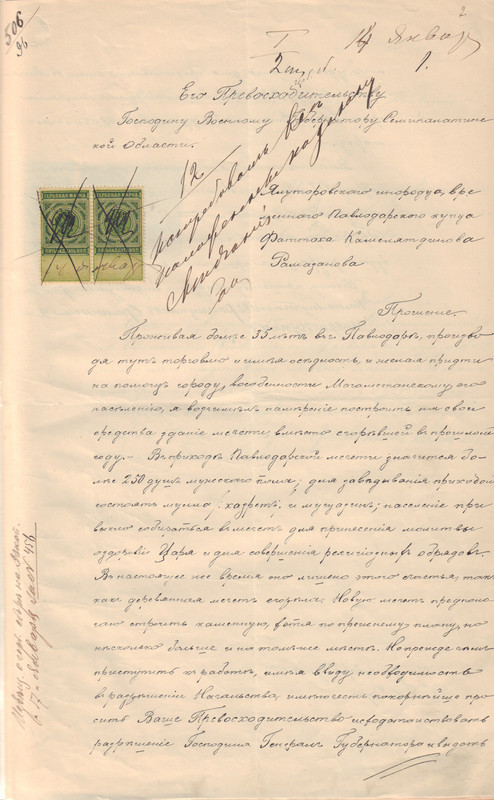 506
96
I
14 Январ
2
1.
Его Превосходительству
Господину Военному Губернатору Семипалатинс
кой Области.
12
истребовать
ГЕРБОВАЯ МАРКА
ГЕРБОВАЯ МАРКА
Ялуторовского инородца, вре
меннаго Павлодарского купца
Фаттаха Камелятдинова
Рамазанова
Прошение.
Проживая более 35 летъ въ г. Павлодаре, произво
дя тутъ торговлю и имея оседлость, и желая придти
на помощь городу, в особенности Магометанскому его
населению, я возымелъ намерение построить на свои
средства здание мечети, вместо сгоревшей въ прошломъ
году. – Въ приходе Павлодарской мечети значится бо
лее 250 душъ мужескаго пола; для заведывания приходомъ
состоятъ мулла (хазретъ) и муэдзинъ; население при
выкло собираться въ мечеть для принесения молитвы
о здравии Царя и для совершения религиозныхъ обрядовъ.
Въ настоящее же время оно лишено этого счастья, такъ
какъ деревянная мечеть сгорела. Новую мечеть предпола
гаю строить каменную, хотя по прежнему плану, но
несколько больше и на томъ же месте. Но прежде чемъ
приступить къ работе, имея ввиду необходимость
в разрешении Начальства, имею честь покорнейше про
сить Ваше Превосходительство исходатайствовать
разрешение Господина Генералъ Губернатора и выдать